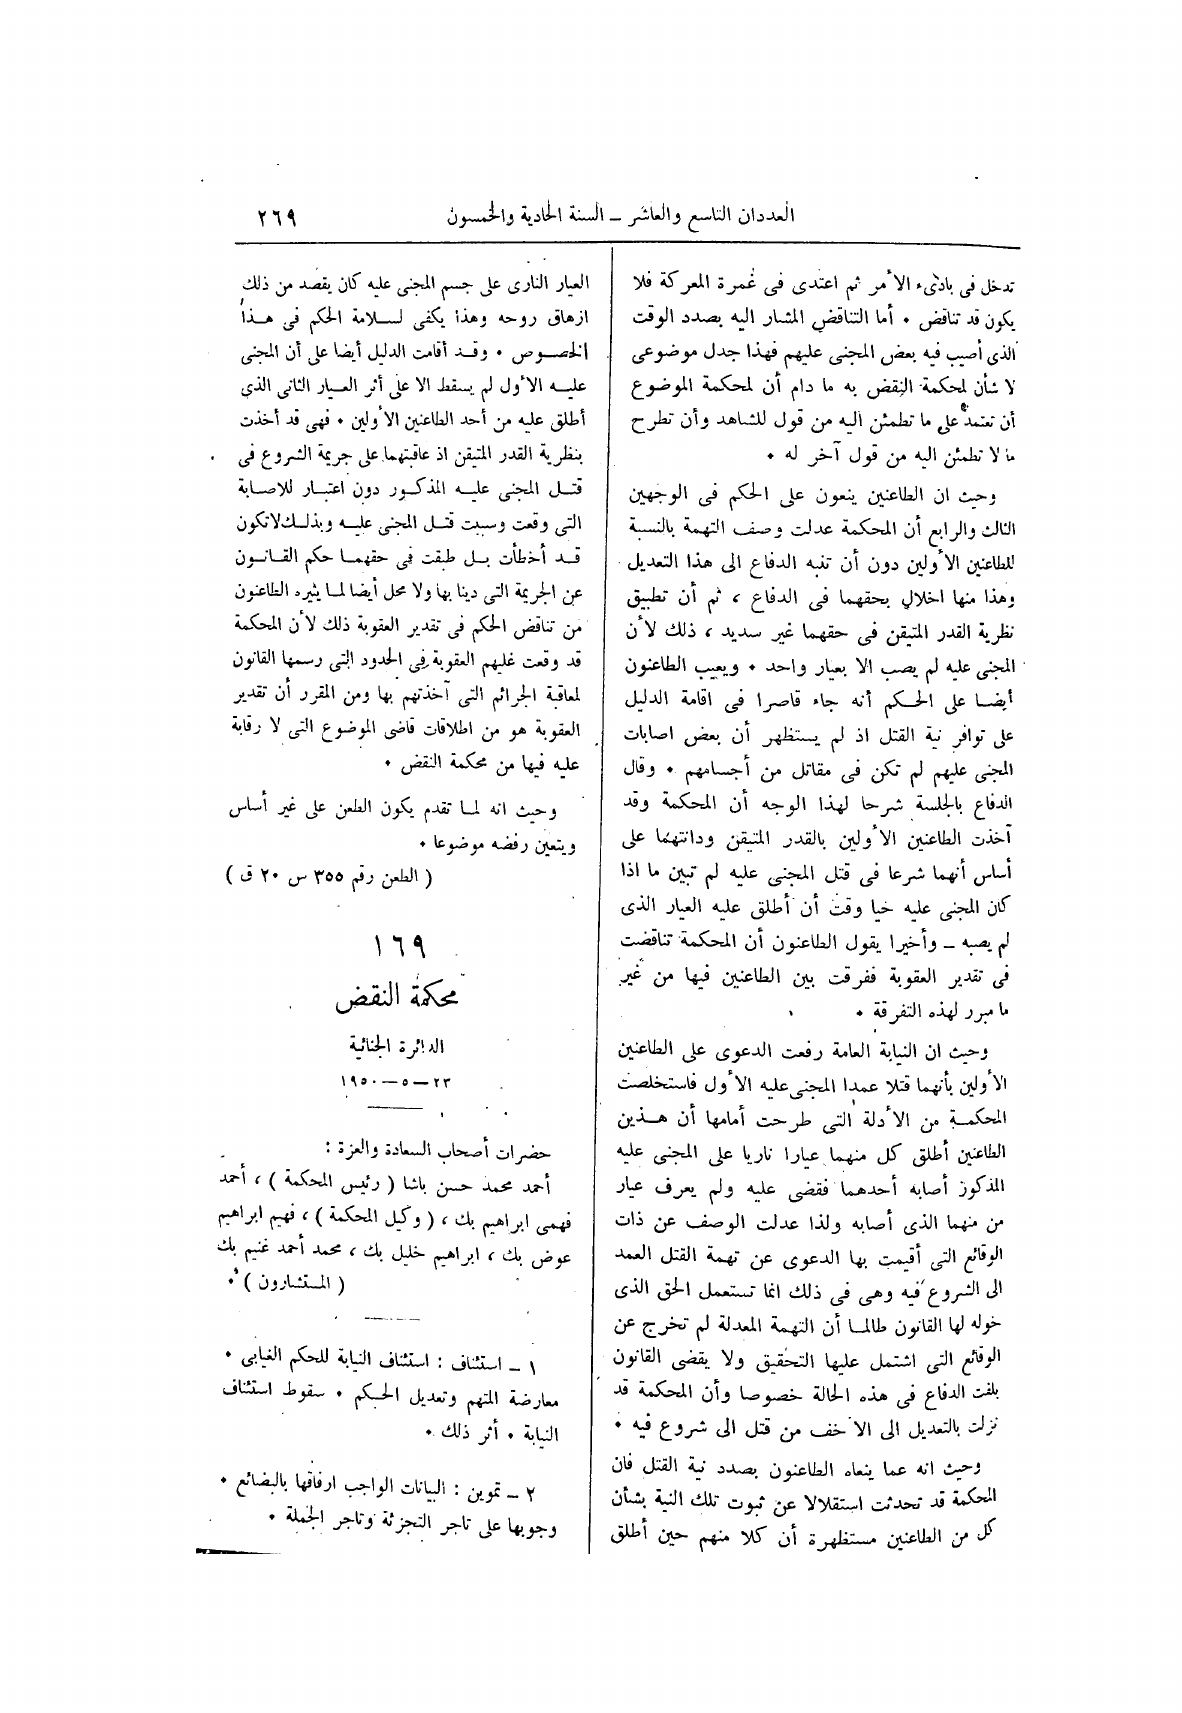 العددان التاسع والعاشر – السنة الحادية والخمسون
٢٦٩
تدخل فى بادىء الأمر ثم اعتدى فى غمرة المعركة فلا
يكون قد تناقض ٠ أما التناقض المشار اليه بصدد الوقت
الذى أصيب فيه بعض المجنى عليهم فهذا جدل موضوعى
لا شأن لمحكمة النقض به ما دام أن لمحكمة الموضوع
أن تعتمد على ما تطمئن اليه من قول للشاهد وأن تطرح
ما لا تطمئن اليه من قول آخر له ٠
وحيث ان الطاعنين ينعون على الحكم فى الوجهين
الثالث والرابع أن المحكمة عدلت وصف التهمة بالنسبة
للطاعنين الأولين دون أن تنبه الدفاع الى هذا التعديل
وهذا منها اخلال بحقهما فى الدفاع ، ثم أن تطبيق
نظرية القدر المتيقن فى حقهما غير سديد ، ذلك لأن
المجنى عليه لم يصب الا بعيار واحد ٠ ويعيب الطاعنون
أيضا على الحكم أنه جاء قاصرا فى اقامة الدليل
على توافر نية القتل اذ لم يستظهر أن بعض اصابات
المجنى عليهم لم تكن فى مقاتل من أجسامهم ٠ وقال
الدفاع بالجلسة شرحا لهذا الوجه أن المحكمة وقد
آخذت الطاعنين الأولين بالقدر المتيقن ودانتهما على
أساس أنهما شرعا فى قتل المجنى عليه لم تبين ما اذا
كان المجنى عليه حيا وقت أن أطلق عليه العيار الذى
لم يصبه – وأخيرا يقول الطاعنون أن المحكمة تناقضت
فى تقدير العقوبة ففرقت بين الطاعنين فيها من غير
ما مبرر لهذه التفرقة ٠
وحيث ان النيابة العامة رفعت الدعوى على الطاعنين
الأولين بأنهما قتلا عمدا المجنى عليه الأول فاستخلصت
المحكمة من الأدلة التى طرحت أمامها أن هذين
الطاعنين أطلق كل منهما عيارا ناريا على المجنى عليه
المذكور أصابه أحدهما فقضى عليه ولم يعرف عيار
من منهما الذى أصابه ولذا عدلت الوصف عن ذات
الوقائع التى أقيمت بها الدعوى عن تهمة القتل العمد
الى الشروع فيه وهى فى ذلك انما تستعمل الحق الذى
خوله لها القانون طالما أن التهمة المعدلة لم تخرج عن
الوقائع التى اشتمل عليها التحقيق ولا يقضى القانون
بلفت الدفاع فى هذه الحالة خصوصا وأن المحكمة قد
نزلت بالتعديل الى الأخف من قتل الى شروع فيه ٠
وحيث انه عما ينعاه الطاعنون بصدد نية القتل فان
المحكمة قد تحدثت استقلالا عن ثبوت تلك النية بشأن
كل من الطاعنين مستظهرة أن كلا منهم حين أطلق
العيار النارى على جسم المجنى عليه كان يقصد من ذلك
ازهاق روحه وهذا يكفى لسلامة الحكم فى هذا
الخصوص ٠ وقد أقامت الدليل أيضا على أن المجنى
عليه الأول لم يسقط الا على أثر العيار الثانى الذى
أطلق عليه من أحد الطاعنين الأولين ٠ فهى قد أخذت
بنظرية القدر المتيقن اذ عاقبتهما على جريمة الشروع فى
قتل المجنى عليه المذكور دون اعتبار للاصابة
التى وقعت وسببت قتل المجنى عليه وبذلك لا تكون
قد أخطأت بل طبقت فى حقهما حكم القانون
عن الجريمة التى دينا بها ولا محل أيضا لما يثيره الطاعنون
من تناقض الحكم فى تقدير العقوبة ذلك لأن المحكمة
قد وقعت عليهم العقوبة فى الحدود التى رسمها القانون
لمعاقبة الجرائم التى آخذتهم بها ومن المقرر أن تقدير
العقوبة هو من اطلاقات قاضى الموضوع التى لا رقابة
عليه فيها من محكمة النقض ٠
وحيث انه لما تقدم يكون الطعن على غير أساس
ويتعين رفضه موضوعا ٠
( الطعن رقم ٣٥٥ س ٢٠ ق )
١٦٩
محكمة النقض
الدائرة الجنائية
٢٣ – ٥ – ١٩٥٠
حضرات أصحاب السعادة والعزة :
أحمد محمد حسن باشا ( رئيس المحكمة ) ، أحمد
فهمى ابراهيم بك ، ( وكيل المحكمة ) ، فهيم ابراهيم
عوض بك ، ابراهيم خليل بك ، محمد أحمد غنيم بك
( المستشارون ) ٠
١ – استئناف : استئناف النيابة للحكم الغيابى ٠
معارضة المتهم وتعديل الحكم ٠ سقوط استئناف
النيابة ٠ أثر ذلك ٠
٢ – تموين : البيانات الواجب ارفاقها بالبضائع ٠
وجوبها على تاجر التجزئة وتاجر الجملة ٠